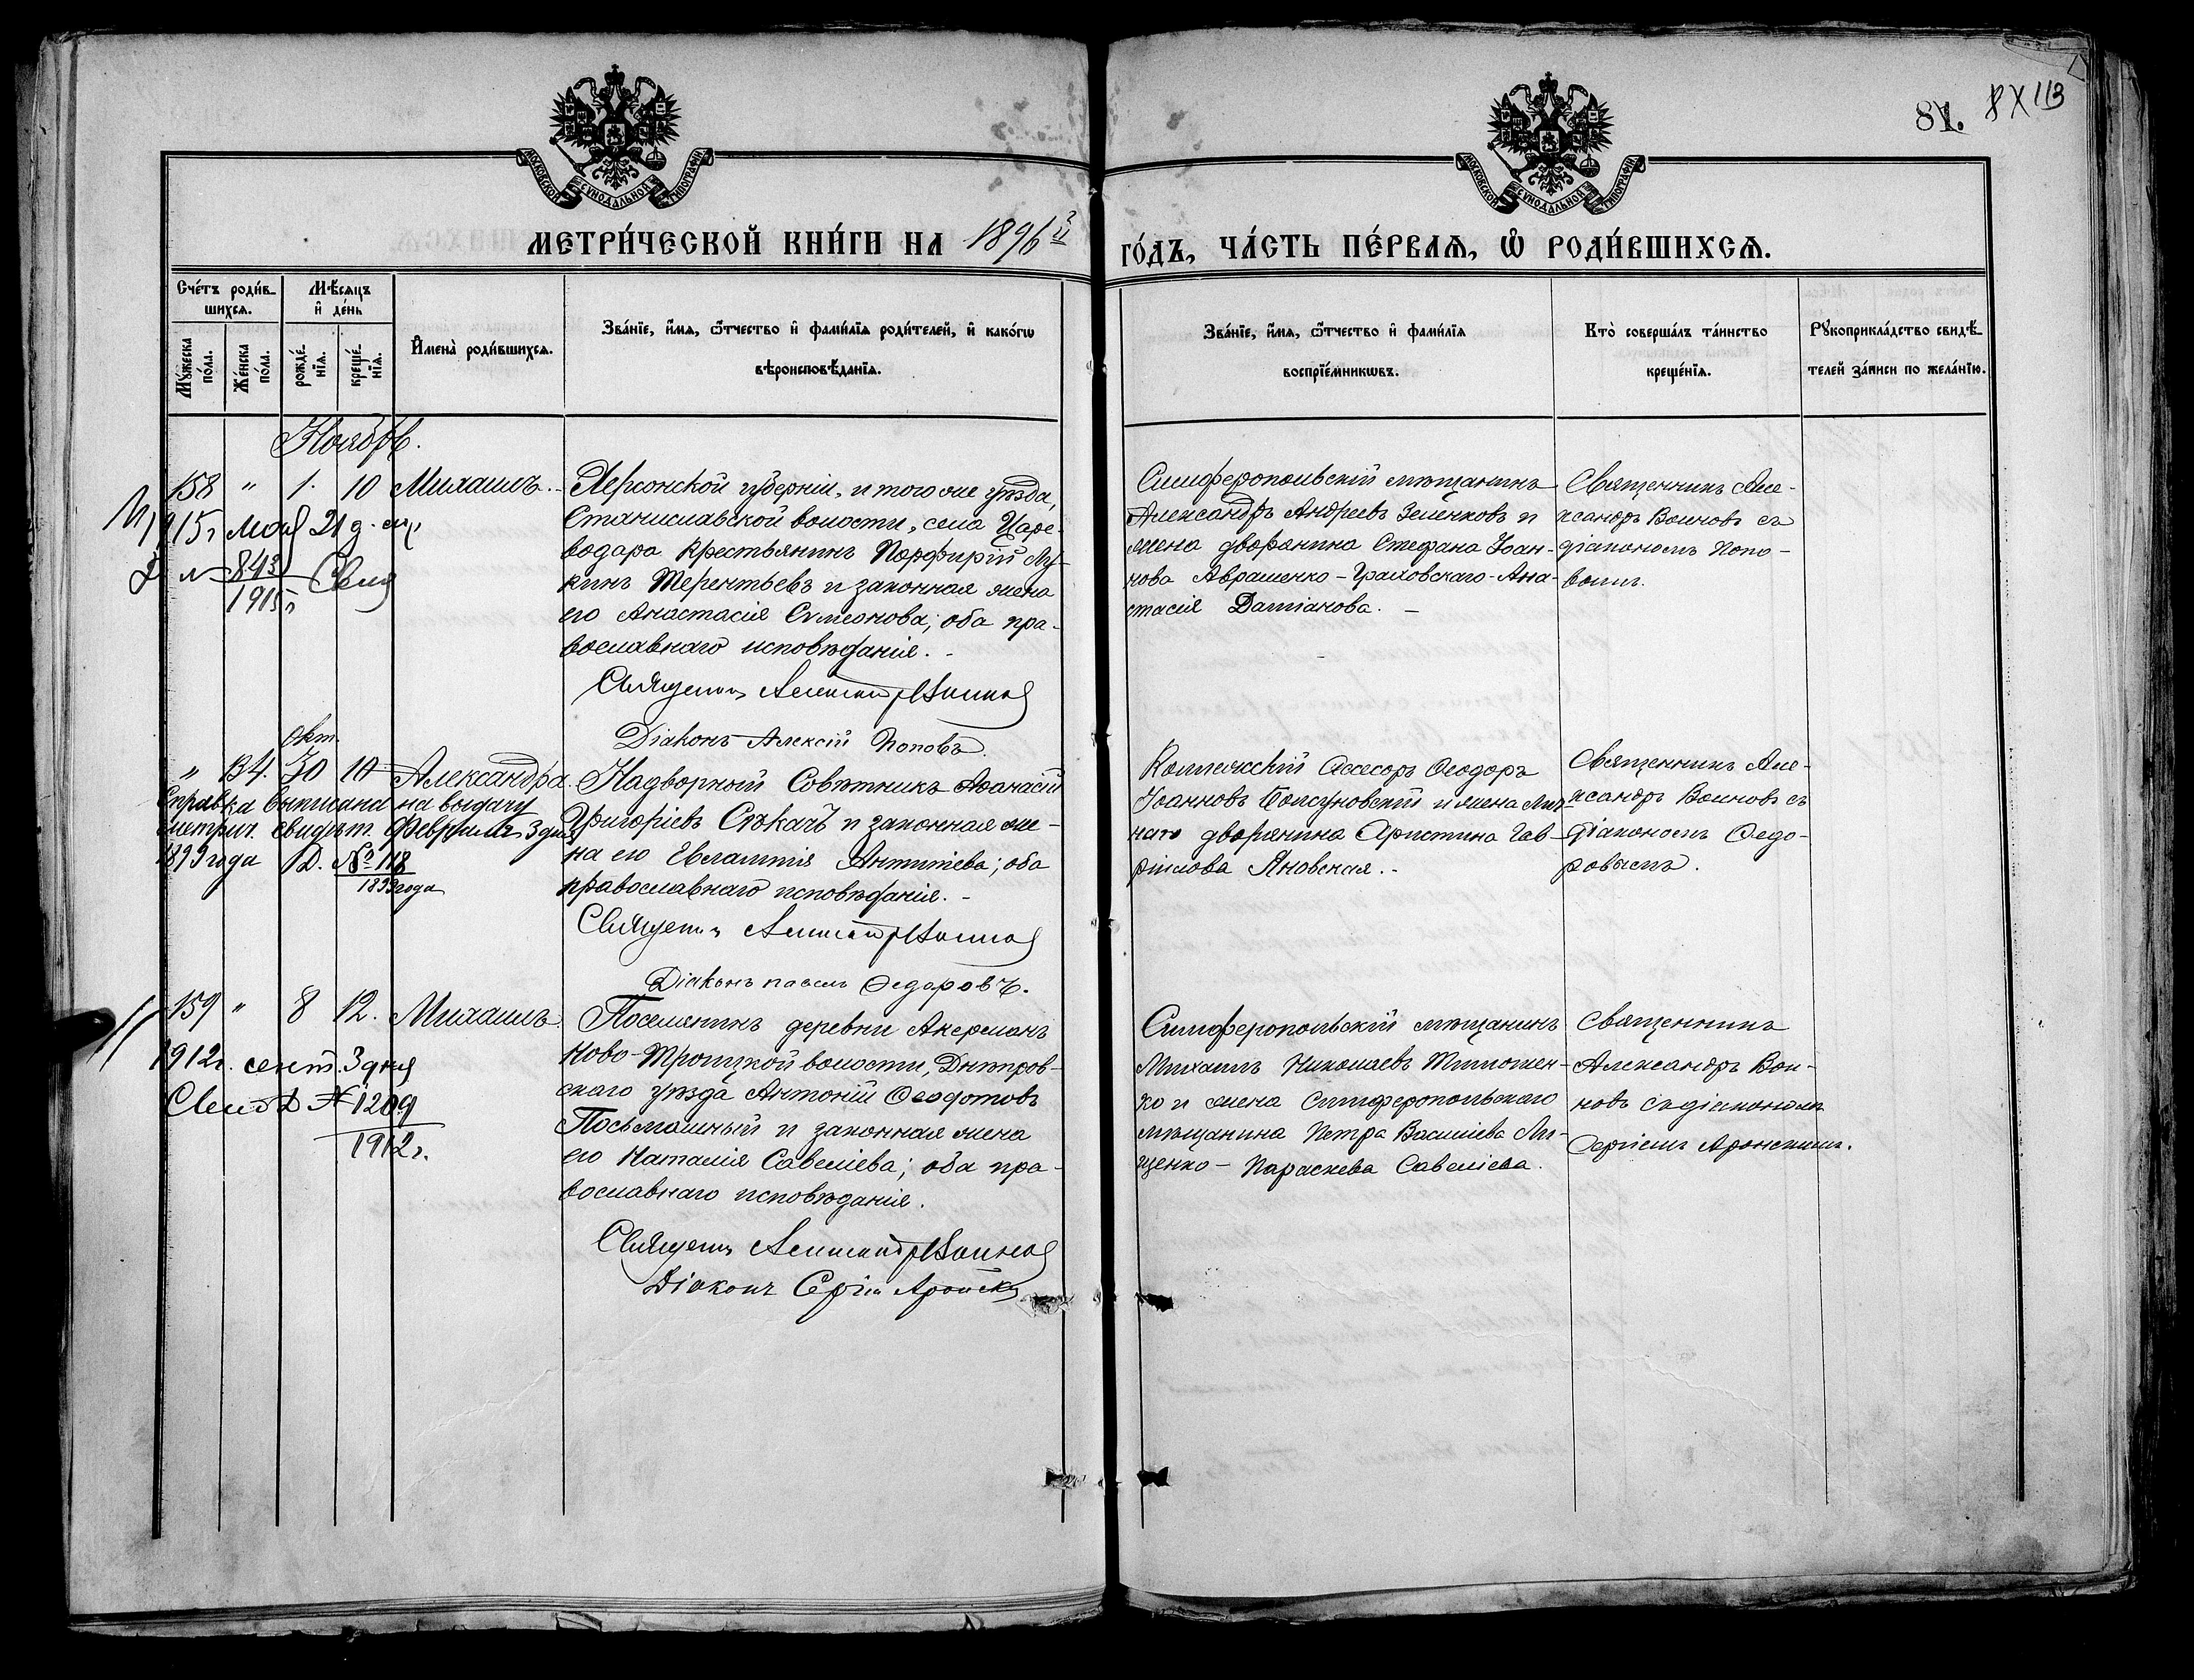 81.
113
МОСКОВСКОЙ СУНОДАЛЬНОЙ ТИПОГРАФІИ
МОСКОВСКОЙ СУНОДАЛЬНОЙ ТИПОГРАФІИ
МЕТРИ́ЧЕСКОЙ КНИ́ГИ НА 1896й
ГО́ДЪ, ЧА́СТЬ ПЕ́РВАЯ, Ѡ РОДИ́ВШИХСЯ.
Сче́тъ роди́в-
шихся.
Му́жеска
по́ла.
Же́нска
по́ла.
Мѣ́сяцъ
и҆ де́нь
рожде́-
нїя.
креще́-
нїя.
И҆мена̀ роди́вшихся.
Зва́нїе, и҆́мя, ѻ҆́тчество и҆ фами́лїя роди́телей, и҆ како́гѡ
вѣроисповѣ́данїя.
Зва́нїе, и҆́мя, ѻ҆́тчество и҆ фами́лїя
воспрїе́мникѡвъ.
Кто̀ соверша́лъ та́инство
креще́нїя.
Рꙋкоприкла́дство свидѣ́-
телей за́писи по жела́нїю.
Ноябрь.
158 " 1. 10 Михаилъ.
1915г мая 21 д.
№ 843
1915г
Херсонской губерніи, и того же уѣзда,
Станиславской волости, села Царе-
водара крестьянинъ Порфирій Лу-
кинъ Терентьевъ и законная жена
его Анастасія Сумеонова; оба пра-
вославнаго исповѣданія. -
Священникъ Александръ Воиновъ
Діаконъ Алексій Поповъ.
Симферопольскій мѣщанинъ
Александръ Андреевъ Зеленковъ и
жена дворянина Стефана Іоан-
нова Аврашенко-Граховскаго-Ана-
стасія Даміанова. -
Священникъ Але-
ксандръ Воиновъ съ
діакономъ Попо-
вымъ.
окт.
" 134. 30 10 Александра.
Справка выписана на выдачу
метрич. свидѣт. Февраля 3 дня
1899 года Д. № 118
1899 года
Надворный Совѣтникъ Аѳанасій
Григоріевъ Сѣкачъ и законная же-
на его Евлампія Антипіева; оба
православнаго исповѣданія. -
Священникъ Александръ Воиновъ
Діаконъ Павелъ Ѳедоровъ.
Коллежскій Ассесоръ Ѳеодоръ
Іоанновъ Болсуновскій и жена лич-
наго дворянина Христина Гав-
ріилова Яновская. -
Священникъ Але-
ксандръ Воиновъ съ
діакономъ Ѳедо-
ровымъ.
159 " 8 12. Михаилъ.
1912г. сент. 3 дня
Свид Д № 1209
1912г.
Поселянинъ деревни Акерманъ
Ново-Троицкой волости, Днѣпров-
скаго уѣзда Антоній Ѳеодотовъ
Посьмашный и законная жена
его Наталія Савеліева; оба пра-
вославнаго исповѣданія.
Священникъ Александръ Воиновъ
Діаконъ Сергій Аронскій
Симферопольскій мѣщанинъ
Михаилъ Николаевъ Тимошен-
ко и жена Симферопольскаго
мѣщанина Петра Василіева Ли-
щенко - Параскева Савеліева.
Священникъ
Александръ Вои-
новъ съ діакономъ
Сергіемъ Аронскимъ.